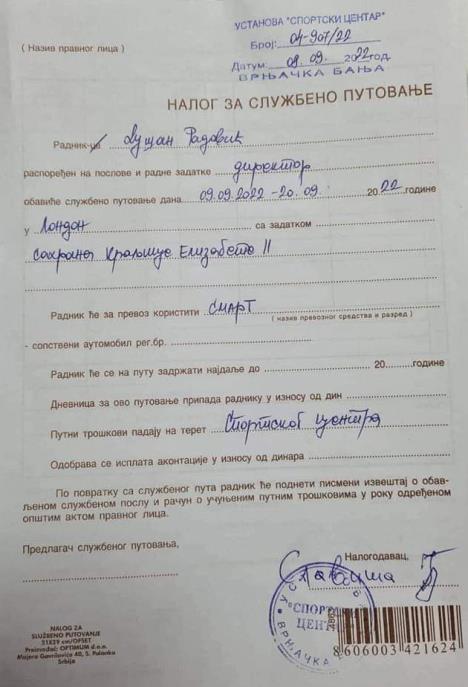 УСТАНОВА "СПОРТСКИ ЦЕНТАР"
( Назив правног лица )
Број: 04-907/22
Датум: 08.09. 2022 год.
ВРЊАЧКА БАЊА
НАЛОГ ЗА СЛУЖБЕНО ПУТОВАЊЕ
Радник-ца Душан Радовић
распоређен на послове и радне задатке директор
обавиће службено путовање дана 09.09.2022-20.09. 2022 године
у Лондон са задатком
сахрана Краљице Елизабете II
Радник ће за превоз користити СМАРТ
( назив превозног средства и разред )
- сопствени аутомобил рег.бр.
Радник ће се на путу задржати најдаље до 20 године
Дневница за ово путовање припада раднику у износу од дин
Путни трошкови падају на терет Спортског центра
Одобрава се исплата аконтације у износу од динара
По повратку са службеног пута радник ће поднети писмени извештај о обав-
љеном службеном послу и рачун о учуњеним путним трошковима у року одређеном
општим актом правног лица.
Предлагач службеног путовања,
Налогодавац,
УСТАНОВА
"СПОРТСКИ
ЦЕНТАР"
ВРЊАЧКА
НАЛОГ ЗА
СЛУЖБЕНО ПУТОВАЊЕ
21X29 cm/OFSET
Proizvođač: OPTIMUM d.o.o.
Majora Gavrilovića 40, S. Palanka
Srbija
8 606003 421624